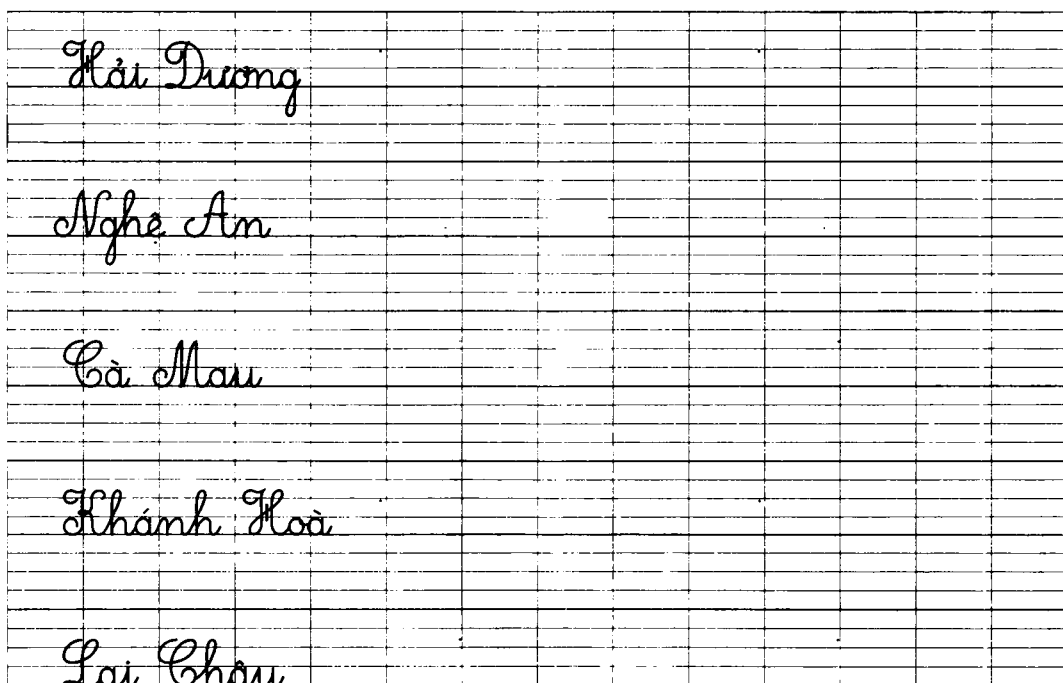 Hải Dương
Nghệ An
Cà Mau
Khánh Hoà
Lai Châu